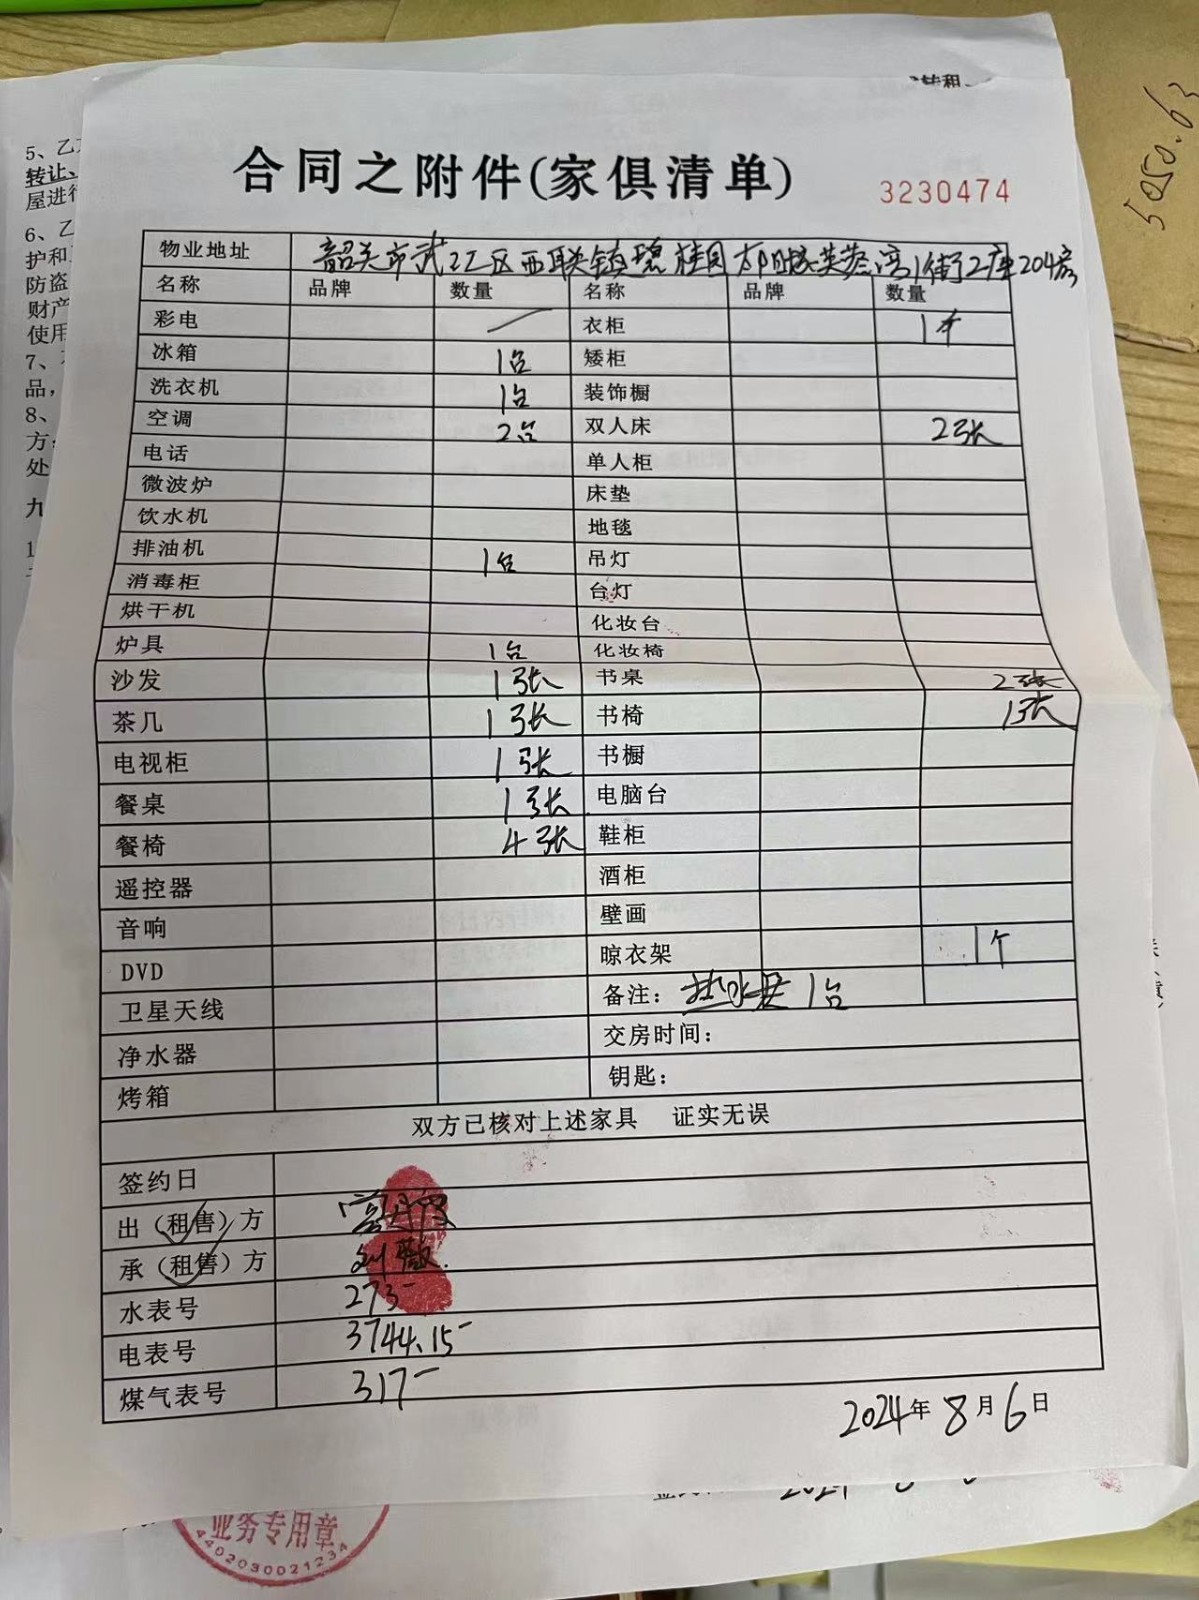 转租
5050.63
5、乙
转让、
屋进行
6、乙
护和
防盗
财产
使用
7、
品，
8、
方：
处
九
合同之附件(家俱清单)
3230474
物业地址 韶关市武江区西联镇碧桂园太阳城芙蓉湾1街2座204房
名称 品牌 数量 名称 品牌 数量
彩电 衣柜 1个
冰箱 1台 矮柜
洗衣机 1台 装饰橱
空调 2台 双人床 2张
电话 单人柜
微波炉 床垫
饮水机 地毯
排油机 1台 吊灯
消毒柜 台灯
烘干机 化妆台
炉具 1台 化妆椅
沙发 1张 书桌 2张
茶几 1张 书椅 1张
电视柜 1张 书橱
餐桌 1张 电脑台
餐椅 4张 鞋柜
遥控器 酒柜
音响 壁画
DVD 晾衣架 1个
卫星天线 备注：热水器1台
净水器 交房时间：
烤箱 钥匙：
双方已核对上述家具 证实无误
签约日
出（租售）方
承（租售）方
水表号 273
电表号 3744.15
煤气表号 317
2024年8月6日
业务专用章
4402030021234